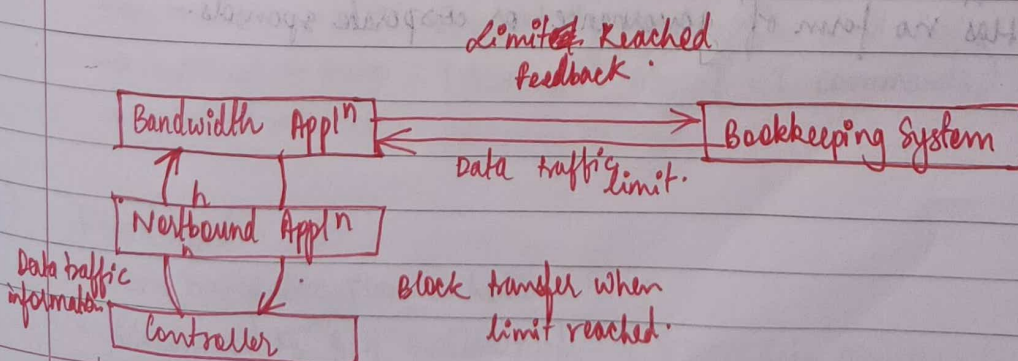 Limited Reached
feedback.
Bandwidth Applⁿ
Bookkeeping System
Data traffic limit.
Northbound Applⁿ
Data traffic
information
Block transfer when
limit reached.
Controller